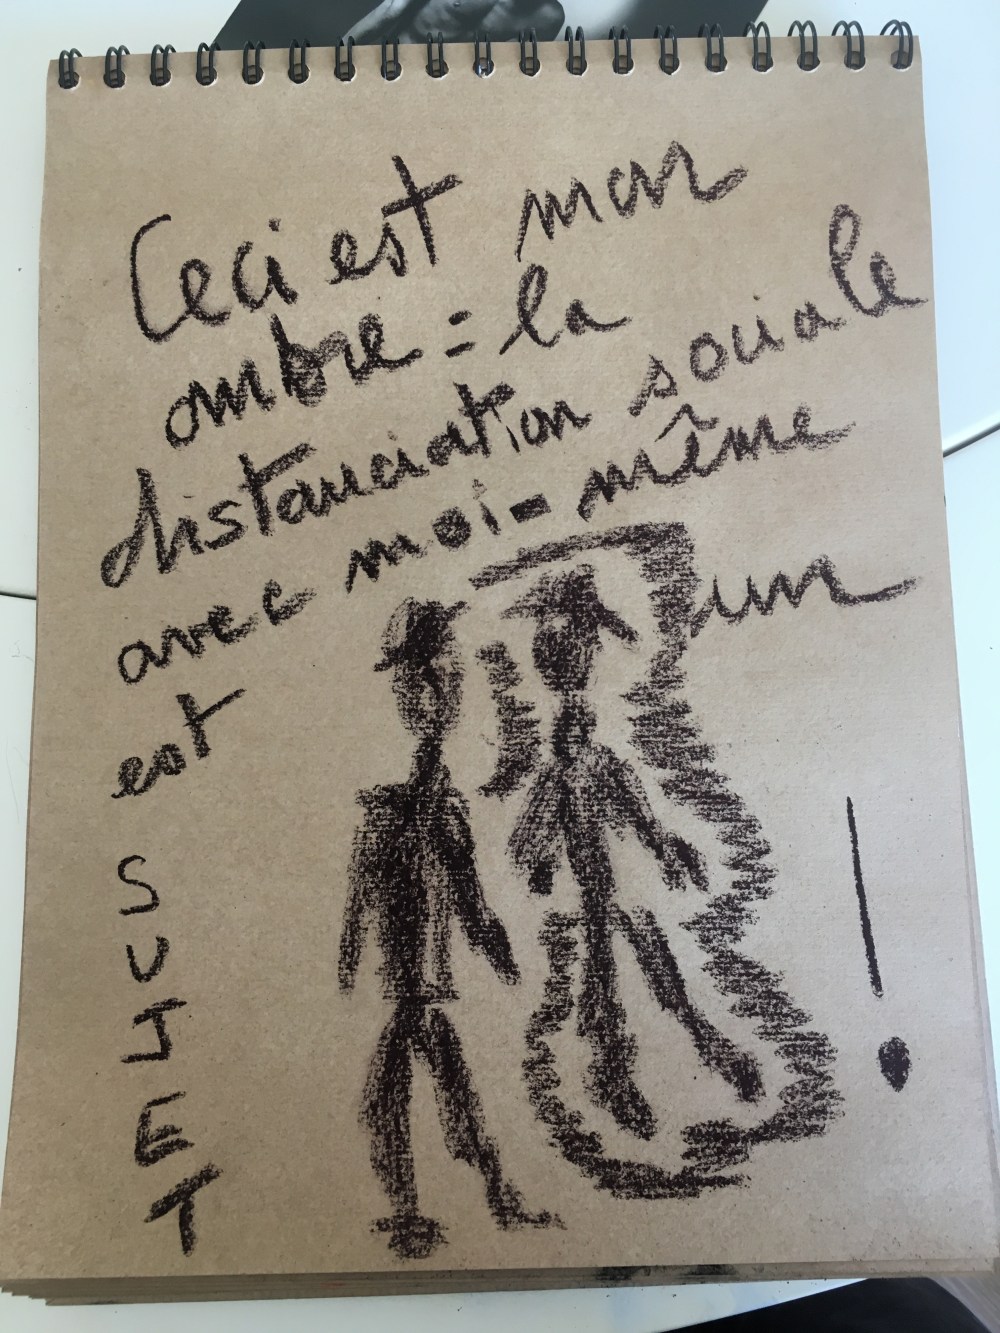 Ceci est mon
ombre = la
distanciation sociale
avec moi-même
est un
SUJET !